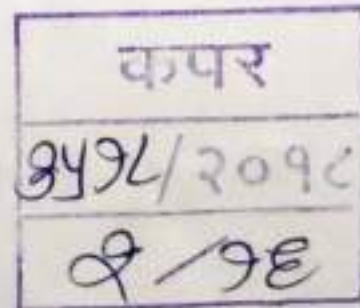 कपर
३५१८/२०१८
२/१६